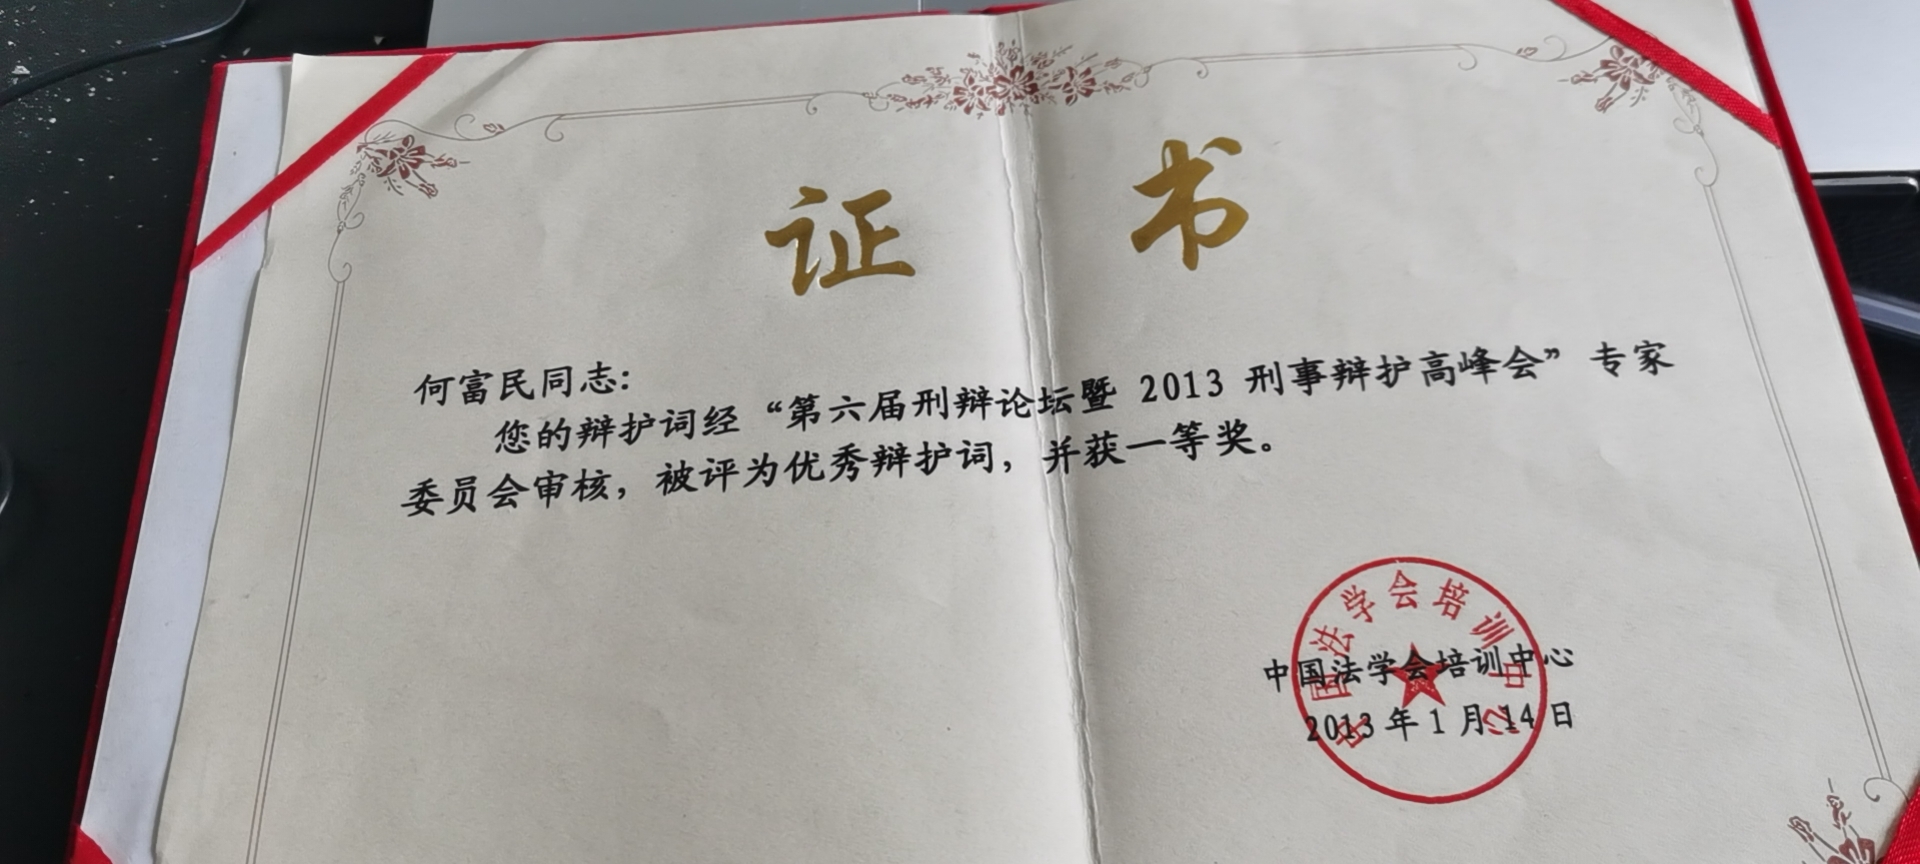 证书
何富民同志：
您的辩护词经“第六届刑辩论坛暨 2013 刑事辩护高峰会”专家
委员会审核，被评为优秀辩护词，并获一等奖。
中国法学会培训中心
中国法学会培训中心
2013 年 1 月 14 日